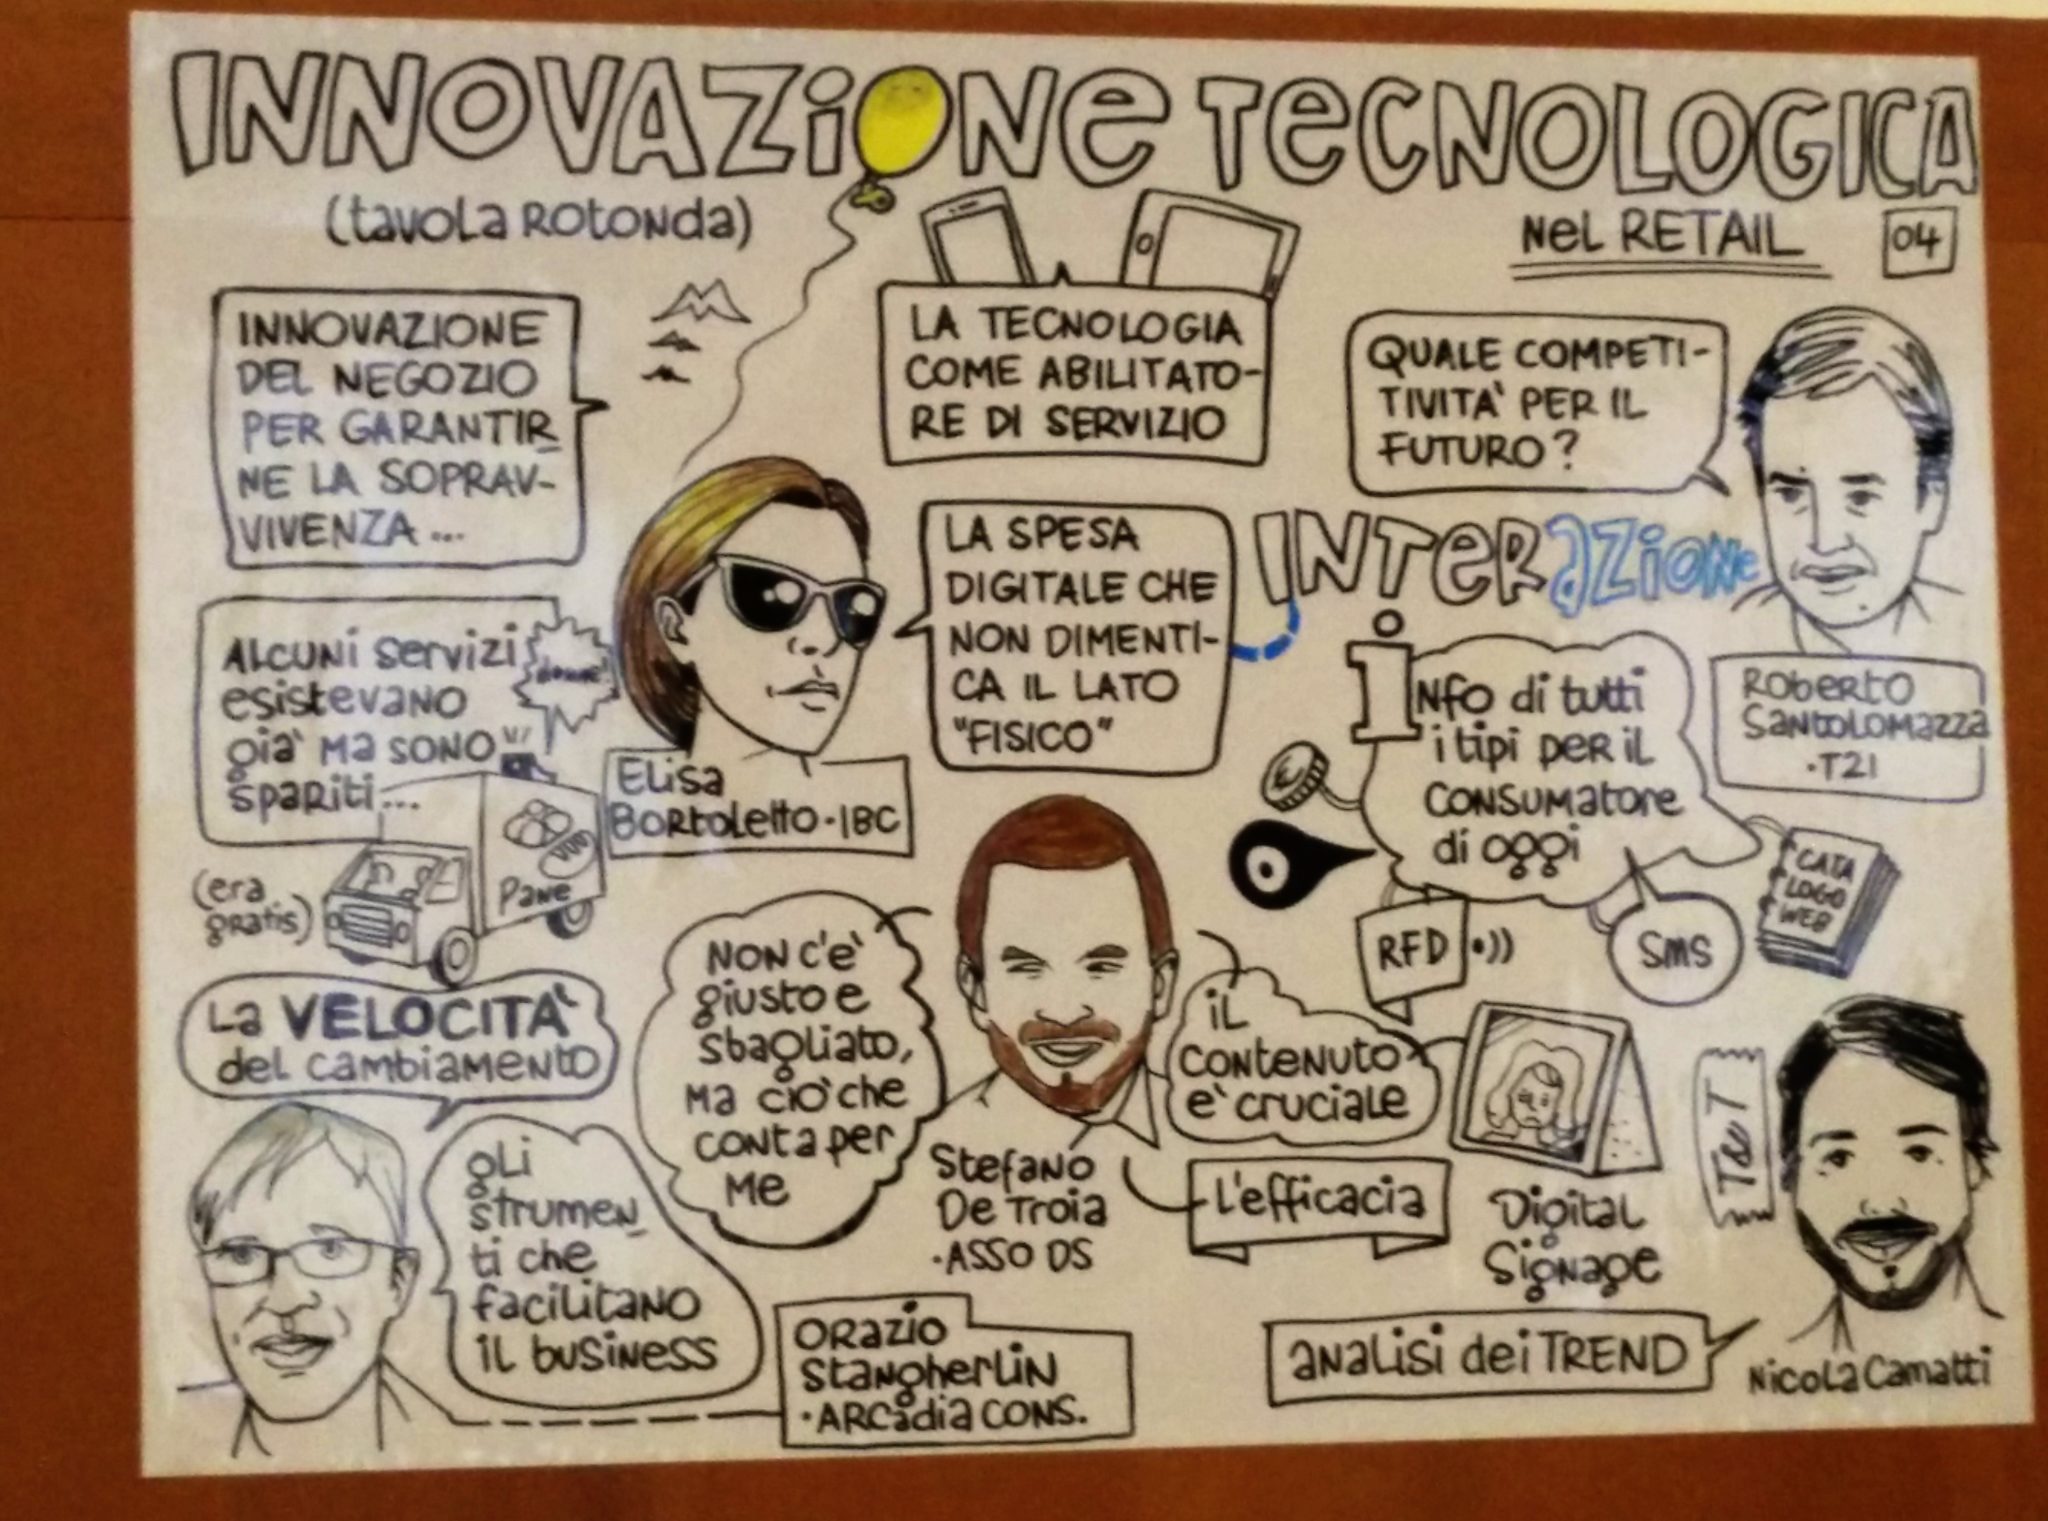 INNOVAZiONe TeCNOLOGICA
(tavola Rotonda)
Nel RETAIL
04
INNOVAZIONE
DEL NEGOZIO
PER GARANTIR
NE LA SOPRAV-
VIVENZA...
LA TECNOLOGIA
COME ABILITATO-
RE DI SERVIZIO
QUALE COMPETI-
TIVITA' PER IL
FUTURO?
LA SPESA
DIGITALE CHE
NON DIMENTI-
CA IL LATO
"FISICO"
INTerazione
ALCUNI servizi
esistevano
già ma sono
spariti...
(era
gratis)
Pane
Elisa
Bortoletto · IBC
iNfo di tutti
i tipi per il
consumatore
di oggi
Roberto
Santolomazza
·T21
€
RFD
SMS
CATA
LOGO
WEB
La VELOCITA'
del cambiamento
NON c'e'
giusto e
sbagliato,
ma cio' che
conta per
me
il
contenuto
e' cruciale
gli
strumen
ti che
facilitano
il business
Stefano
De Troia
·ASSO DS
L'efficacia
Digital
Signage
TavT
Orazio
Stangherlin
·ARCadia CONS.
analisi dei TREND
Nicola Camatti